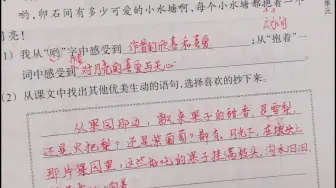 哟，卵石间有多少可爱的小水塘啊，每个小水塘都抱着一个
亮！
1）我从“哟”字中感受到 作者的欣喜和喜爱 ；从“抱着”一
词中感受到 对月亮的喜爱与关心
（2）从课文中找出其他优美生动的语句，选择喜欢的抄下来。
从果园那边，飘来果子的甜香，是雪梨，
还是火把梨？还是紫葡萄？都有，月光下，在坡头上
那片果园里，这些好吃的果子挂满枝头，沟水汩汩，